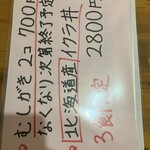 むしがき2コ700円
なくなり次第終了予定
北海道産イクラ丼
2800円
3食限定